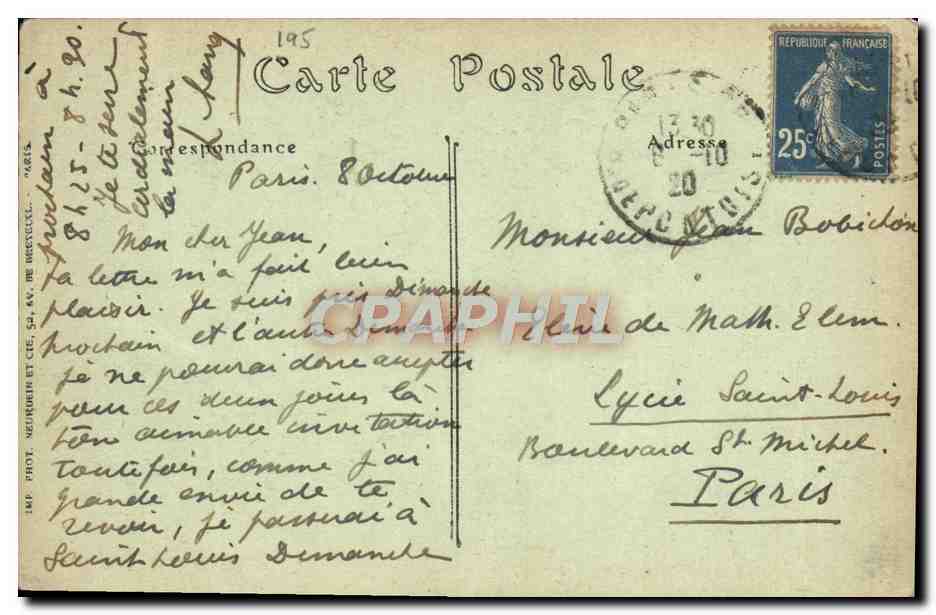 195
Carte Postale
Correspondance
Adresse
REPUBLIQUE FRANÇAISE
25c
POSTES
13 30
-10
20
Paris. 8 Octobre
Mon cher Jean,
ta lettre m'a fait bien
plaisir. Je suis pris Dimanche
prochain et l'autre Dimanche
je ne pourrai donc accepter
pour ces deux jours là
ton aimable invitation
toutefois, comme j'ai
grande envie de te
revoir, je passerai à
Saint Louis Dimanche
prochain à
8h25 - 8h.30.
Je te serre
cordialement
la main
Monsieur Jean Bobichon
Elève de Math. Elem.
Lycée Saint-Louis
Boulevard St. Michel.
Paris
IMP. PHOT. NEURDEIN ET CIE, 52, AV. DE BRETEUIL. PARIS.
CPARPHIL